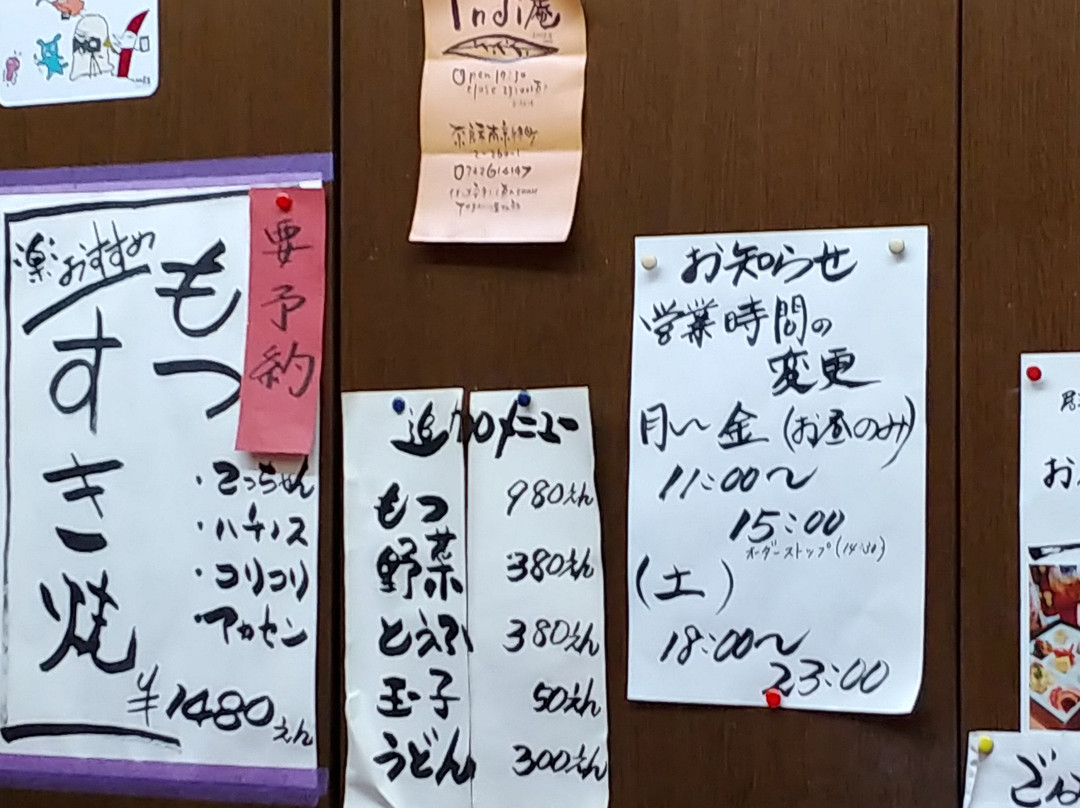 Indi庵
Open 17:30
0742614147
楽おすすめ
もつ
すき焼
要予約
・てっちゃん
・ハチノス
・コリコリ
・アカセン
¥1480えん
追加メニュー
もつ 980えん
野菜 380えん
とうふ 380えん
玉子 50えん
うどん 300えん
お知らせ
営業時間の
変更
月〜金(お昼のみ)
11:00〜
15:00
オーダーストップ(14:30)
(土)
18:00〜
23:00